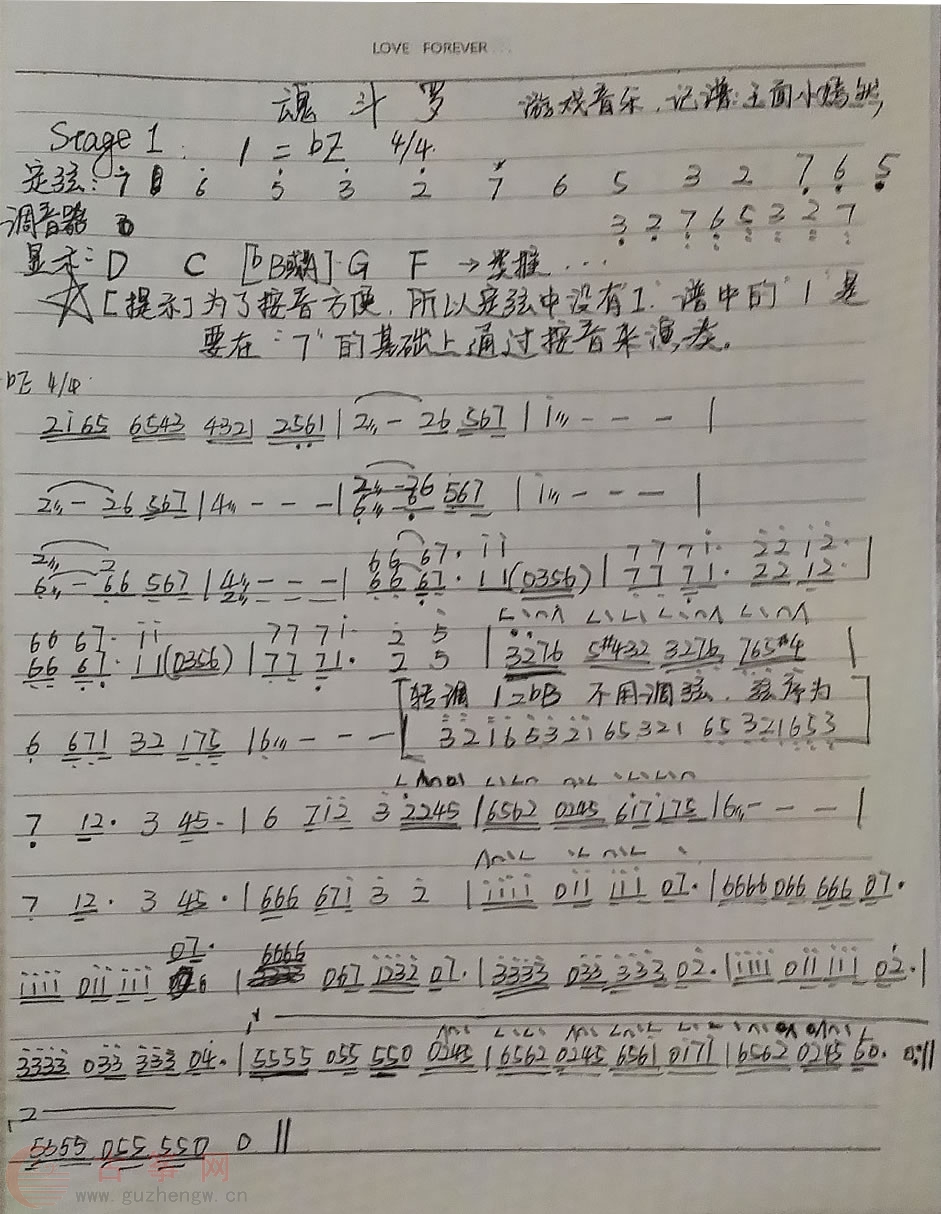 LOVE FOREVER
魂斗罗 游戏音乐.记谱:王面小
Stage 1: 1=bE 4/4
定弦: 7 6 5 3 2 7 6 5 3 2 7 6 5
调音器 3 2 7 6 5 3 2 7
显示: D C [bB或#A] G F → 类推 ...
☆[提示]为了按音方便,所以定弦中没有1. 谱中的"1"是
要在"7"的基础上通过按音来演奏。
bE 4/4
2165 6543 4321 2561 | 2 - 26 567 | 1 - - - |
2 - 26 567 | 4 - - - | 2 - 26 567 | 1 - - - |
6 - 66 567 | 4 - - - | 66 67· 11(0356) | 77 71· 22 12· |
66 67· 11(0356) | 77 71· 2 5 | 3276 5#432 3276 765#4 |
[转调 1=bB 不用调弦.弦序为
6 671 32 175 | 6 - - - 3 2 1 6 5 3 2 1 6 5 3 2 1 6 5 3 2 1 6 5 3]
7 12· 3 45· | 6 712 3 2245 | 6562 0245 617175 | 6 - - - |
7 12· 3 45· | 666 671 3 2 | 1111 011 111 07· | 6666 066 666 07·
1111 011 111 07· | 6666 067 1232 07· | 3333 033 333 02· | 1111 011 111 02· |
3333 033 333 04· | 5555 055 550 0245 | 6562 0245 6561 0171 | 6562 0245 60· 0 :||
2
5555 055 550 0 ||
古筝网
www.guzhengw.cn